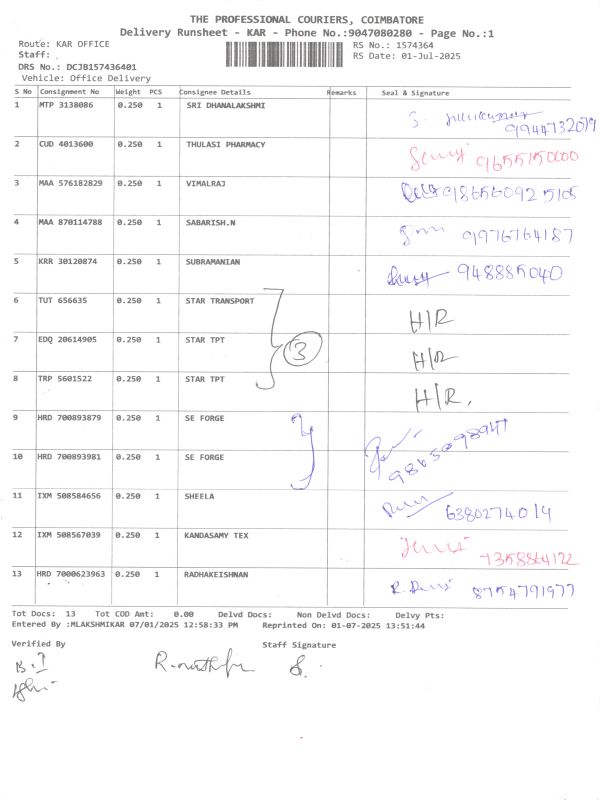 THE PROFESSIONAL COURIERS, COIMBATORE
Delivery Runsheet - KAR - Phone No.:9047080280 - Page No.:1
Route: KAR OFFICE RS No.: 1574364
Staff: , RS Date: 01-Jul-2025
DRS No.: DCJB157436401
Vehicle: Office Delivery
S No Consignment No Weight PCS Consignee Details Remarks Seal & Signature
1 MTP 3138086 0.250 1 SRI DHANALAKSHMI
9944732019
2 CUD 4013600 0.250 1 THULASI PHARMACY
9655150000
3 MAA 576182829 0.250 1 VIMALRAJ
4 MAA 870114788 0.250 1 SABARISH.N
9976764187
5 KRR 30120874 0.250 1 SUBRAMANIAN
948885040
6 TUT 656635 0.250 1 STAR TRANSPORT H/R
7 EDQ 20614905 0.250 1 STAR TPT 3 H/R
8 TRP 5601522 0.250 1 STAR TPT H/R.
9 HRD 700893879 0.250 1 SE FORGE
10 HRD 700893981 0.250 1 SE FORGE
11 IXM 508584656 0.250 1 SHEELA
6380274019
12 IXM 508567039 0.250 1 KANDASAMY TEX
7358864122
13 HRD 7000623963 0.250 1 RADHAKEISHNAN
8754791977
Tot Docs: 13 Tot COD Amt: 0.00 Delvd Docs: Non Delvd Docs: Delvy Pts:
Entered By :MLAKSHMIKAR 07/01/2025 12:58:33 PM Reprinted On: 01-07-2025 13:51:44
Verified By Staff Signature